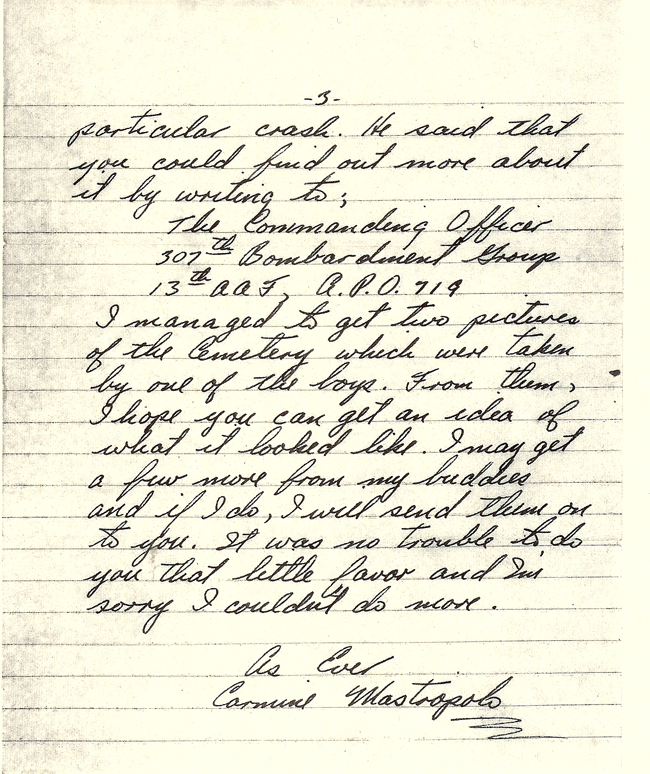 -3-
particular crash. He said that
you could find out more about
it by writing to;
The Commanding Officer
307th Bombardment Group
13th AAF, A.P.O. 719
I managed to get two pictures
of the Cemetery which were taken
by one of the boys. From them,
I hope you can get an idea of
what it looked like. I may get
a few more from my buddies
and if I do, I will send them on
to you. It was no trouble to do
you that little favor and I'm
sorry I couldn't do more.
As Ever
Carmine Mastropolo